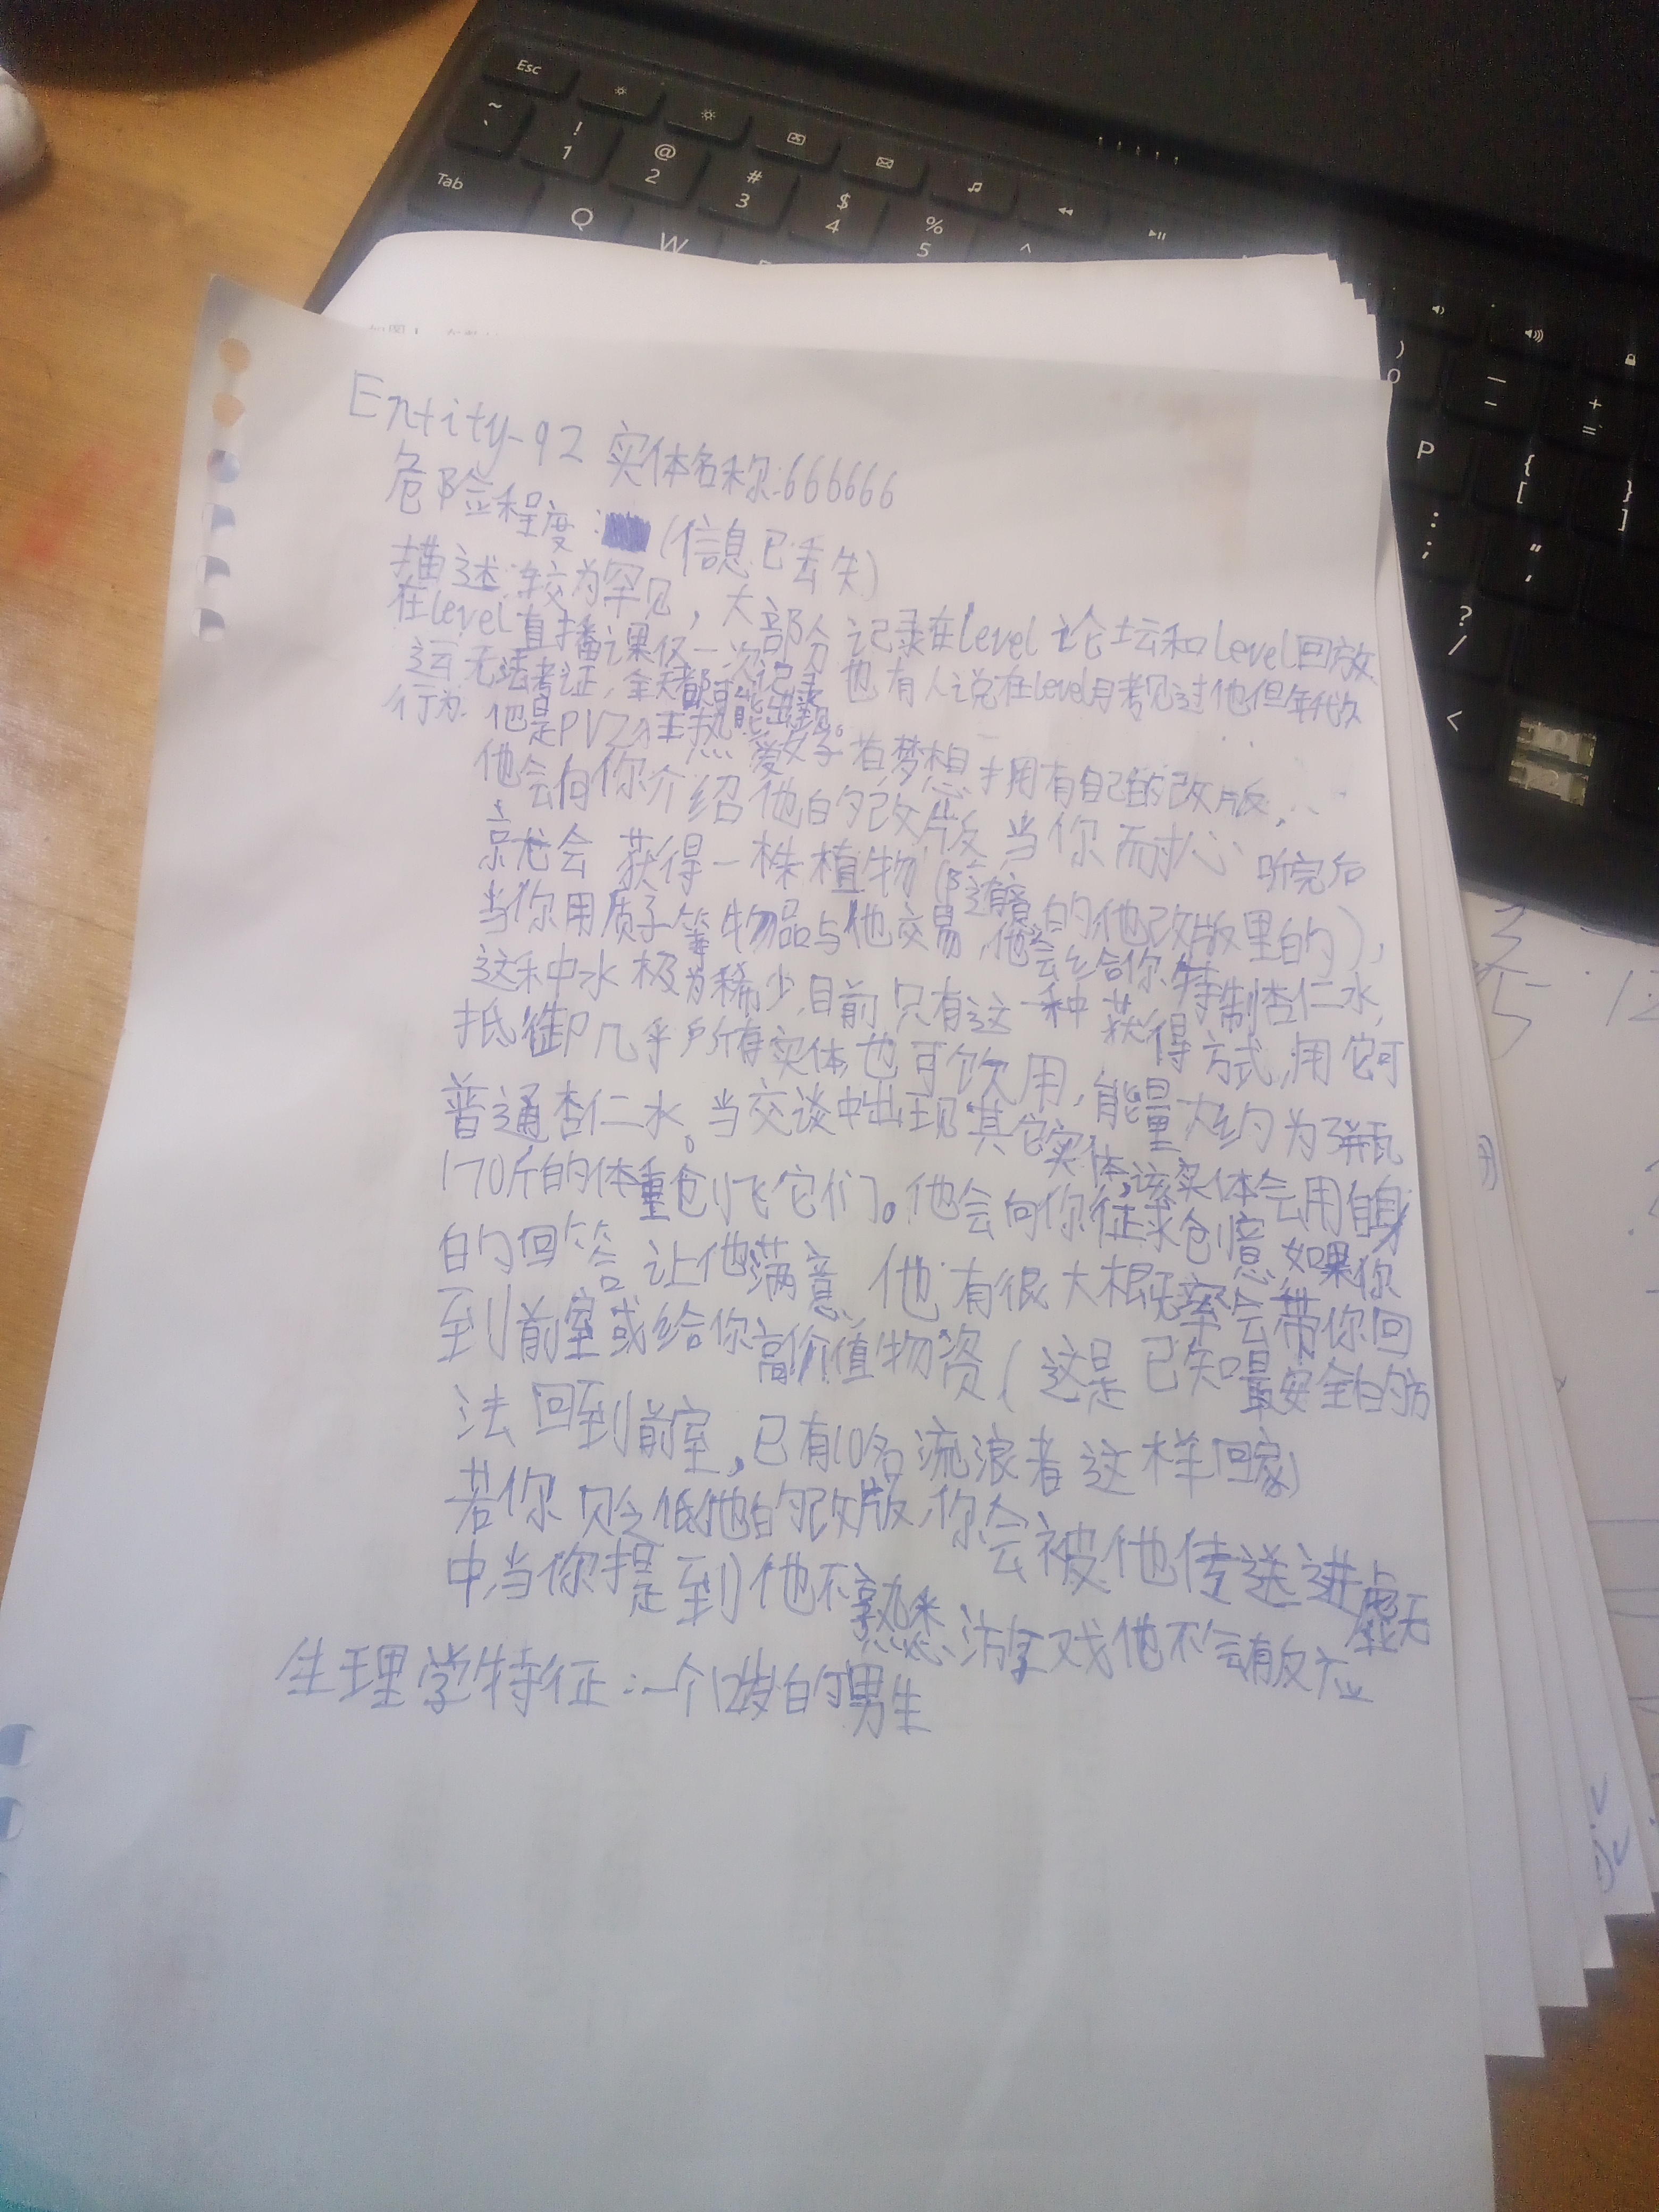 Esc
~
`
!
1
@
2
#
3
$
4
%
5
^
Tab
Q
W
)
0
—
-
+
=
P
{
[
}
]
:
;
"
,
?
/
<
Entity-92 实体名称:666666
危险程度: (信息已丢失)
描述:较为罕见,大部分记录在level论坛和level回放
在level直播课仅一次记录 也有人说在level月考见过他但年代久
远无法考证,全天都可能出现。
行为:他是PVZ狂热爱好者梦想拥有自己的改版,
他会向你介绍他的改版当你耐心听完后
就会获得一株植物(随意的他改版里的),
当你用质子等物品与他交易,他会给你特制杏仁水,
这种水极为稀少,目前只有这一种获得方式,用它可
抵御几乎所有实体,也可饮用,能量大约为3瓶
普通杏仁水。当交谈中出现其它实体,该实体会用自身
170斤的体重创飞它们。他会向你征求创意,如果你
的回答让他满意,他有很大概率会带你回
到前室或给你高价值物资(这是已知最安全的方
法回到前室,已有10名流浪者这样回家)
若你贬低他的改版,你会被他传送进虚无
中,当你提到他不熟悉游戏他不会有反应
生理学特征:一个12岁的男生